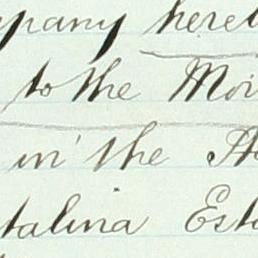 pany here
to the Moi
in the St
talina Esta